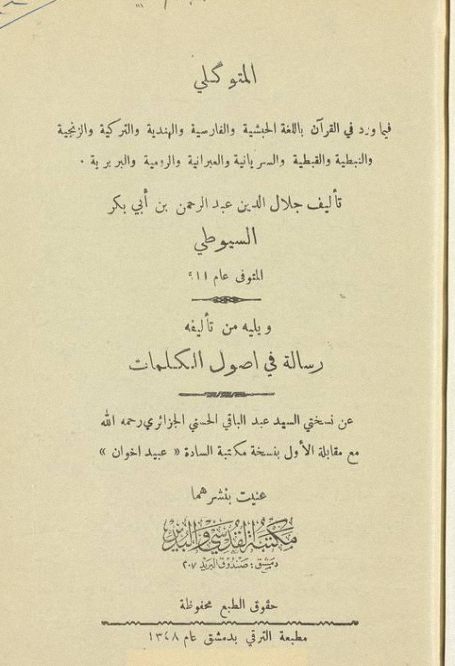 المتوكلي
فيما ورد في القرآن باللغة الحبشية والفارسية والهندية والتركية والزنجية
والنبطية والقبطية والسريانية والعبرانية والرومية والبربرية .
تأليف جلال الدين عبد الرحمن بن أبي بكر
السيوطي
المتوفى عام ٩١١
ويليه من تأليفه
رسالة في اصول الكلمات
عن نسختي السيد عبد الباقي الحسني الجزائري رحمه الله
مع مقابلة الأول بنسخة مكتبة السادة « عبيد اخوان »
عنيت بنشرهما
مكتبة القدسي والبدير
دمشق : صندوق البريد ٢٠٧
حقوق الطبع محفوظة
مطبعة الترقي بدمشق عام ١٣٤٨